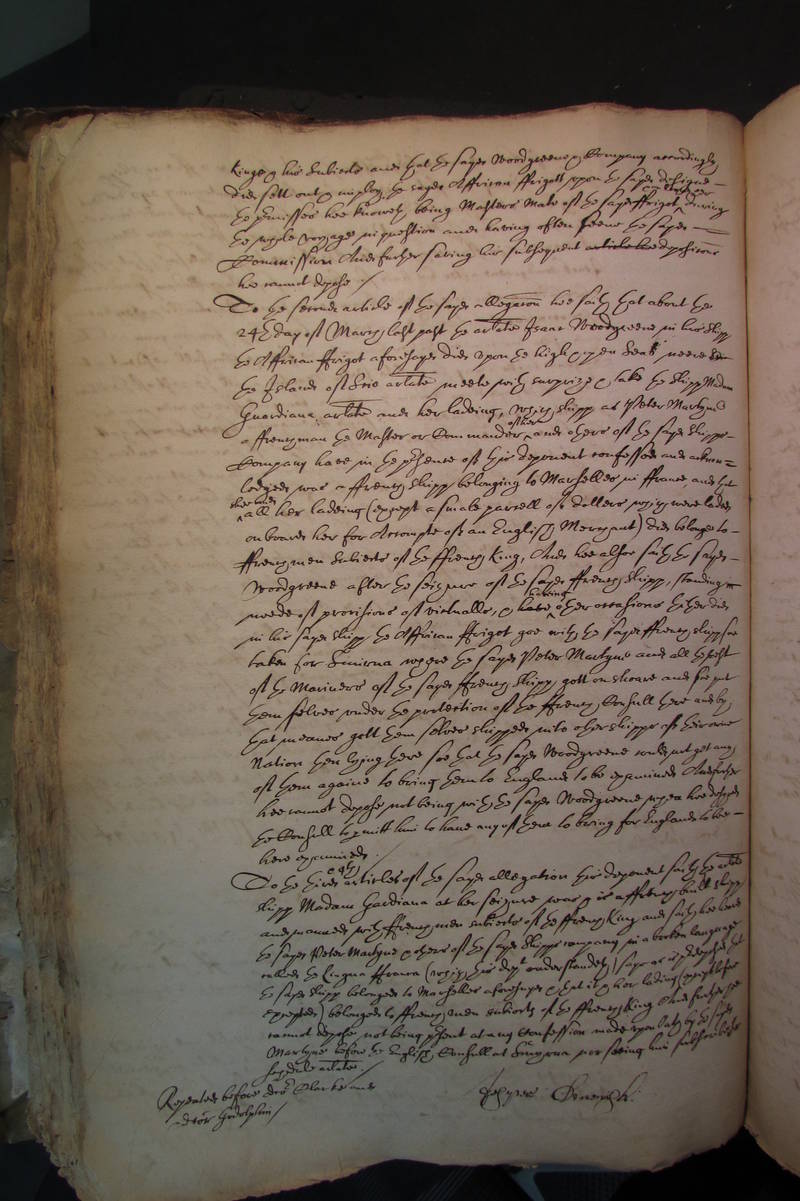 Kinge & his subiects and that the sayd Woodgreene & Company accordingly
did sett out & imploy the sayd Affrican ffrigott upon the sayd designe
the premisses hee knoweth being Masters Mate of the sayd ffrigot during
the whole voyage in question and having often seene the sayd
Commission And further saving his subsequent depositions
hee cannot depose /
To the second article of the sayd allegacon hee saith that about the
24th day of March last past the arlate Isaac Woodgreene in his shipp
the Affrican ffrigot aforesayd did upon the high & open Seas neere
the Island of arlate meete with surprize & take the shipp Madam
Guardiana arlate and her ladeing, which shipp as Peter Martyne
a ffrenchman the Master or Commander of her and others of the sayd shipps
Company have in the presence of this deponent confessed and acknow=
ledged was a ffrench shipp belonging to Marselles in ffrance and that
all her ladeing (except a smale parcell of dollers which were laden
on board her for Accompte of an English Merchant) did belonge to
ffrenchmen subiects of the ffrench King, And hee alsoe saith the sayd
Woodgreene after the seizure of the sayd ffrench shipp, standing in
neede of provisions of victualls, & having other occasions thither did
in his sayd shipp the Affrican ffrigot goe with the sayd ffrench shipp soe
taken for Smirna where the sayd Peter Martyne and all the rest
of the Mariners of the sayd ffrench shipp, gott on shoare and soe put
themselves under the protection of the ffrench Consull there and by
that meanes gott them selves shipped into other shipps of their owne
Nation then lying there soe that the sayd Woodgreene could not get any
of them againe to bring them to England to be examined And further
hee cannot depose not being with the sayd Woodgreene when hee desyred
the Consull to permitt him to have any of them to bring for England to bee
here examined /
To the third articles of the sayd allegation this deponent saith the arlate
shipp Madam Gardiana at her seizure was & is a ffrench built shipp
and manned with ffrenchmen subiects of the ffrench King and saith hee heard
the sayd Peter Martyne & others of the sayd shipps company in a broken language
called the Lingua ffranca (which this dept understandeth) say as is predeposed that
the sayd shipp belonged to Marselles aforesayd & that it & her lading (except before
excepted) belonged to ffrenchmen subiects of the ffrench King And further he
cannot depose not being present at any Confession made upon Oath by the sayd
Martyne before the English Consull at Smyrna nor seeing him subscribe the
schedule arlate /
Repeated before dror Clarke and
dror Godolphin /